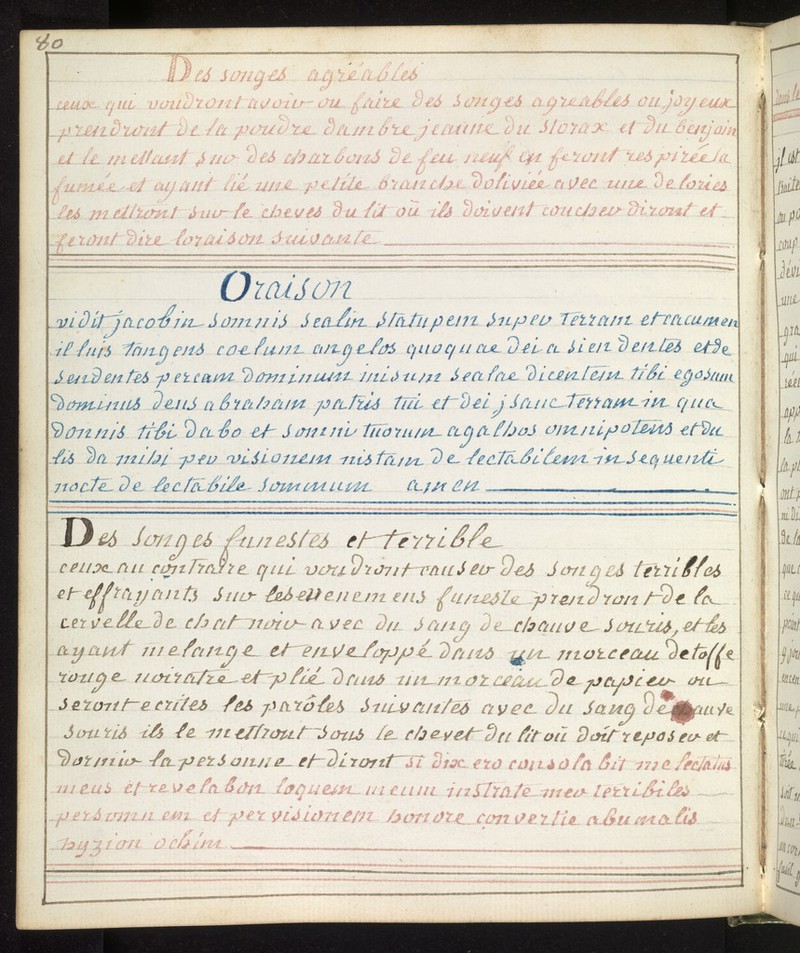 80
Des songes agréables
ceux qui voudront avoir ou faire des songes agreables ou joyeux
prendront de la poudre dambre jeaune du storax et du benjoin
et le mettant sur des charbons de feu neuf en feront respirée la
fumée et ayant lié une petite branche doliviée avec une de lories
les mettront sur le cheves du lit où ils doivent coucher diront et
feront dire loraison suivante
Oraison
vidit jacob in somnis scalin statupem super terram et cacumen
il luis tangens coelum angelos quoquae dei a sien dentes et de
sendentes percam dominum inisum scalae dicentem tibi egosum
dominus deus abraham patris tui et dei jsauc terram in qua
donnis tibi dabo et somni tuorum agalhos omnipotens et du
lis da mihi per visionem nistam delectabilem in sequenti
nocte delectabile somnum amen
Des songes funestes et terrible
ceux au contraire qui voudront causer des songes terribles
et effrayants sur les evenemens funeste prendront de la
cervelle de chat noir avec du sang de chauve souris, et les
ayant melange et enveloppé dans un morceau detoffe
rouge noiratre et plié dans un morceau de papier ou
seront ecrites les paroles suivantes avec du sang de chauve
souris ils le mettront sous le chevet du lit où doit reposer et
dormir la personne et diront si dix ero consolabit me lectatus
meus et revelabon loquem meum instrate meo terribiles
persomnem et per visionem honore convertie abumalis
hyzion ochim